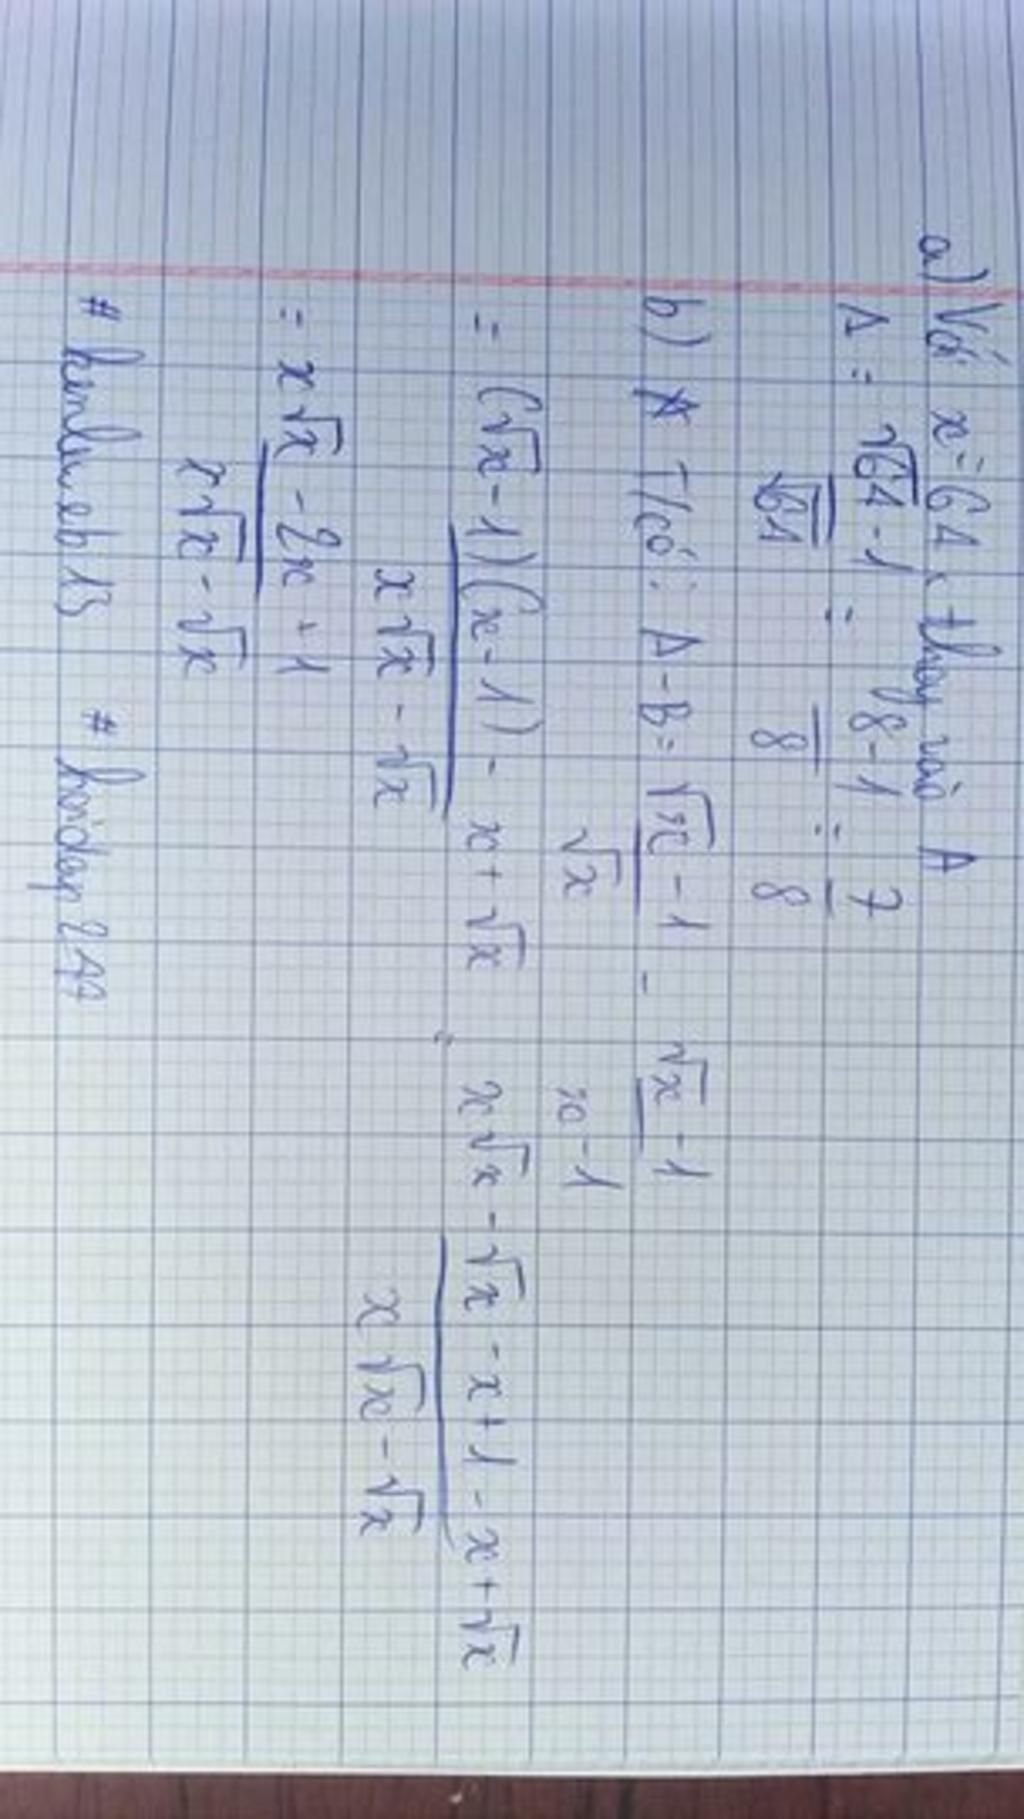 a) Với x=64, thay vào A
A = √64 - 1 / √64 = 8-1 / 8 = 7 / 8
b) T/có: A-B = √x - 1 / √x - √x - 1 / x - 1
= (√x - 1)(x - 1) - x + √x / x√x - √x = x√x - √x - x + 1 - x + √x / x√x - √x
= x√x - 2x + 1 / x√x - √x
# hoidap247